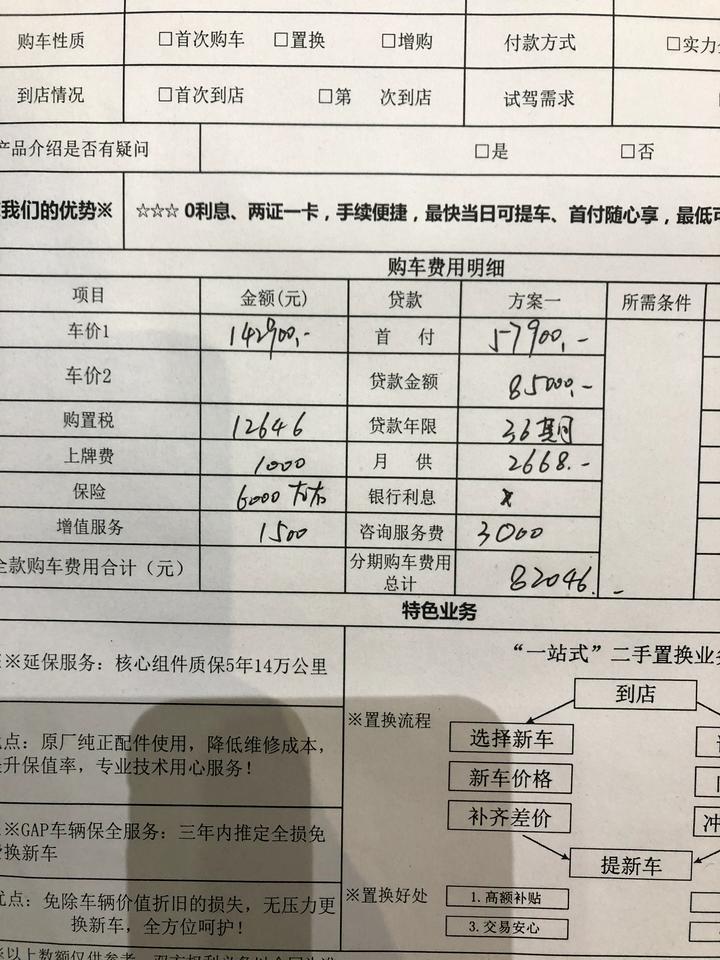 购车性质 □首次购车 □置换 □增购 付款方式 □实力
到店情况 □首次到店 □第 次到店 试驾需求
产品介绍是否有疑问 □是 □否
我们的优势※ ☆☆☆ 0利息、两证一卡，手续便捷，最快当日可提车、首付随心享，最低
购车费用明细
项目 金额(元) 贷款 方案一 所需条件
车价1 142900.- 首 付 57900.-
车价2 贷款金额 85000.-
购置税 12646 贷款年限 36期
上牌费 1000 月 供 2668.-
保险 6000左右 银行利息 x
增值服务 1500 咨询服务费 3000
全款购车费用合计（元） 分期购车费用总计 82046.-
特色业务
※延保服务：核心组件质保5年14万公里
点：原厂纯正配件使用，降低维修成本，
升保值率，专业技术用心服务！
※GAP车辆保全服务：三年内推定全损免
换新车
优点：免除车辆价值折旧的损失，无压力更
换新车，全方位呵护！
“一站式”二手置换业务
※置换流程
到店
选择新车
新车价格
补齐差价
冲
提新车
※置换好处
1.高额补贴
3.交易安心
※以上数额仅供参考，双方权利义务以合同为准